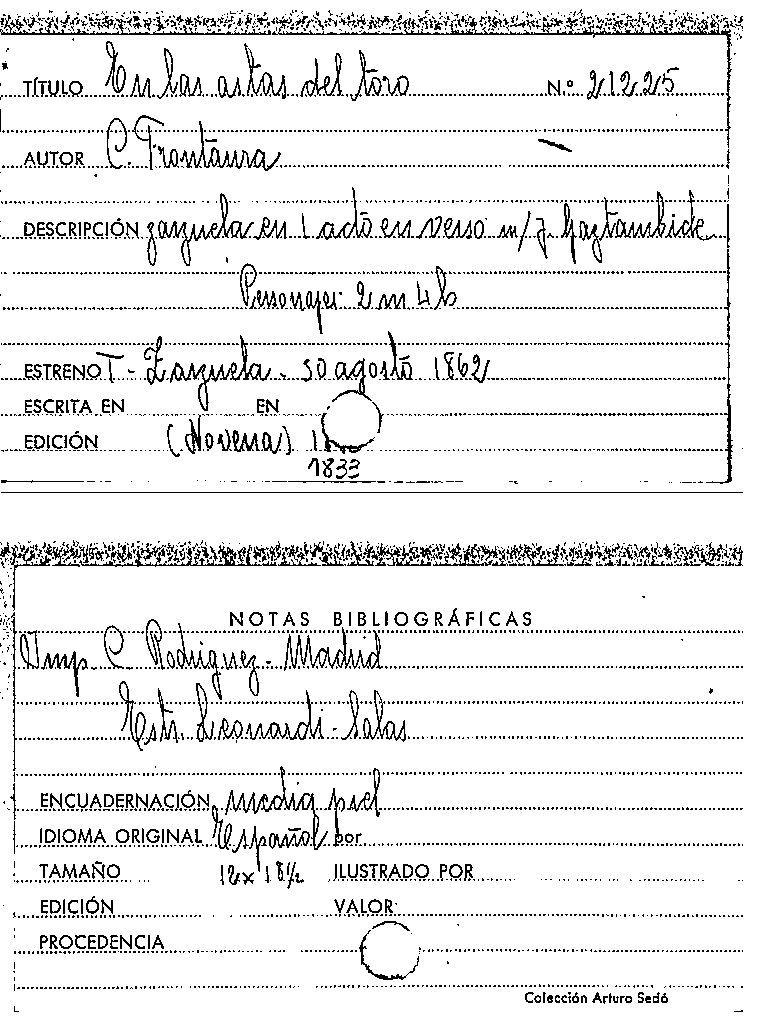 TÍTULO En las astas del toro N.º 21225
AUTOR C. Frontaura
DESCRIPCIÓN zarzuela en 1 acto en verso m/ J. Gaztambide
Personajes 2 m 4 h
ESTRENO T - Zarzuela - 30 agosto 1862
ESCRITA EN EN
EDICIÓN (Novena)
1833
NOTAS BIBLIOGRÁFICAS
Imp. C. Rodriguez - Madrid
Estr. Leonardi - Salas
ENCUADERNACIÓN media piel
IDIOMA ORIGINAL Español por
TAMAÑO 12 x 18½ ILUSTRADO POR
EDICIÓN VALOR
PROCEDENCIA
Colección Arturo Sedó